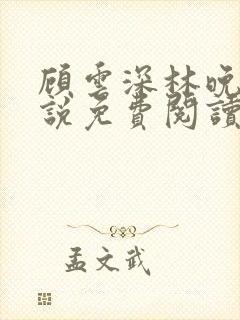 顧雲深林晚
說免費閱讀
孟文武